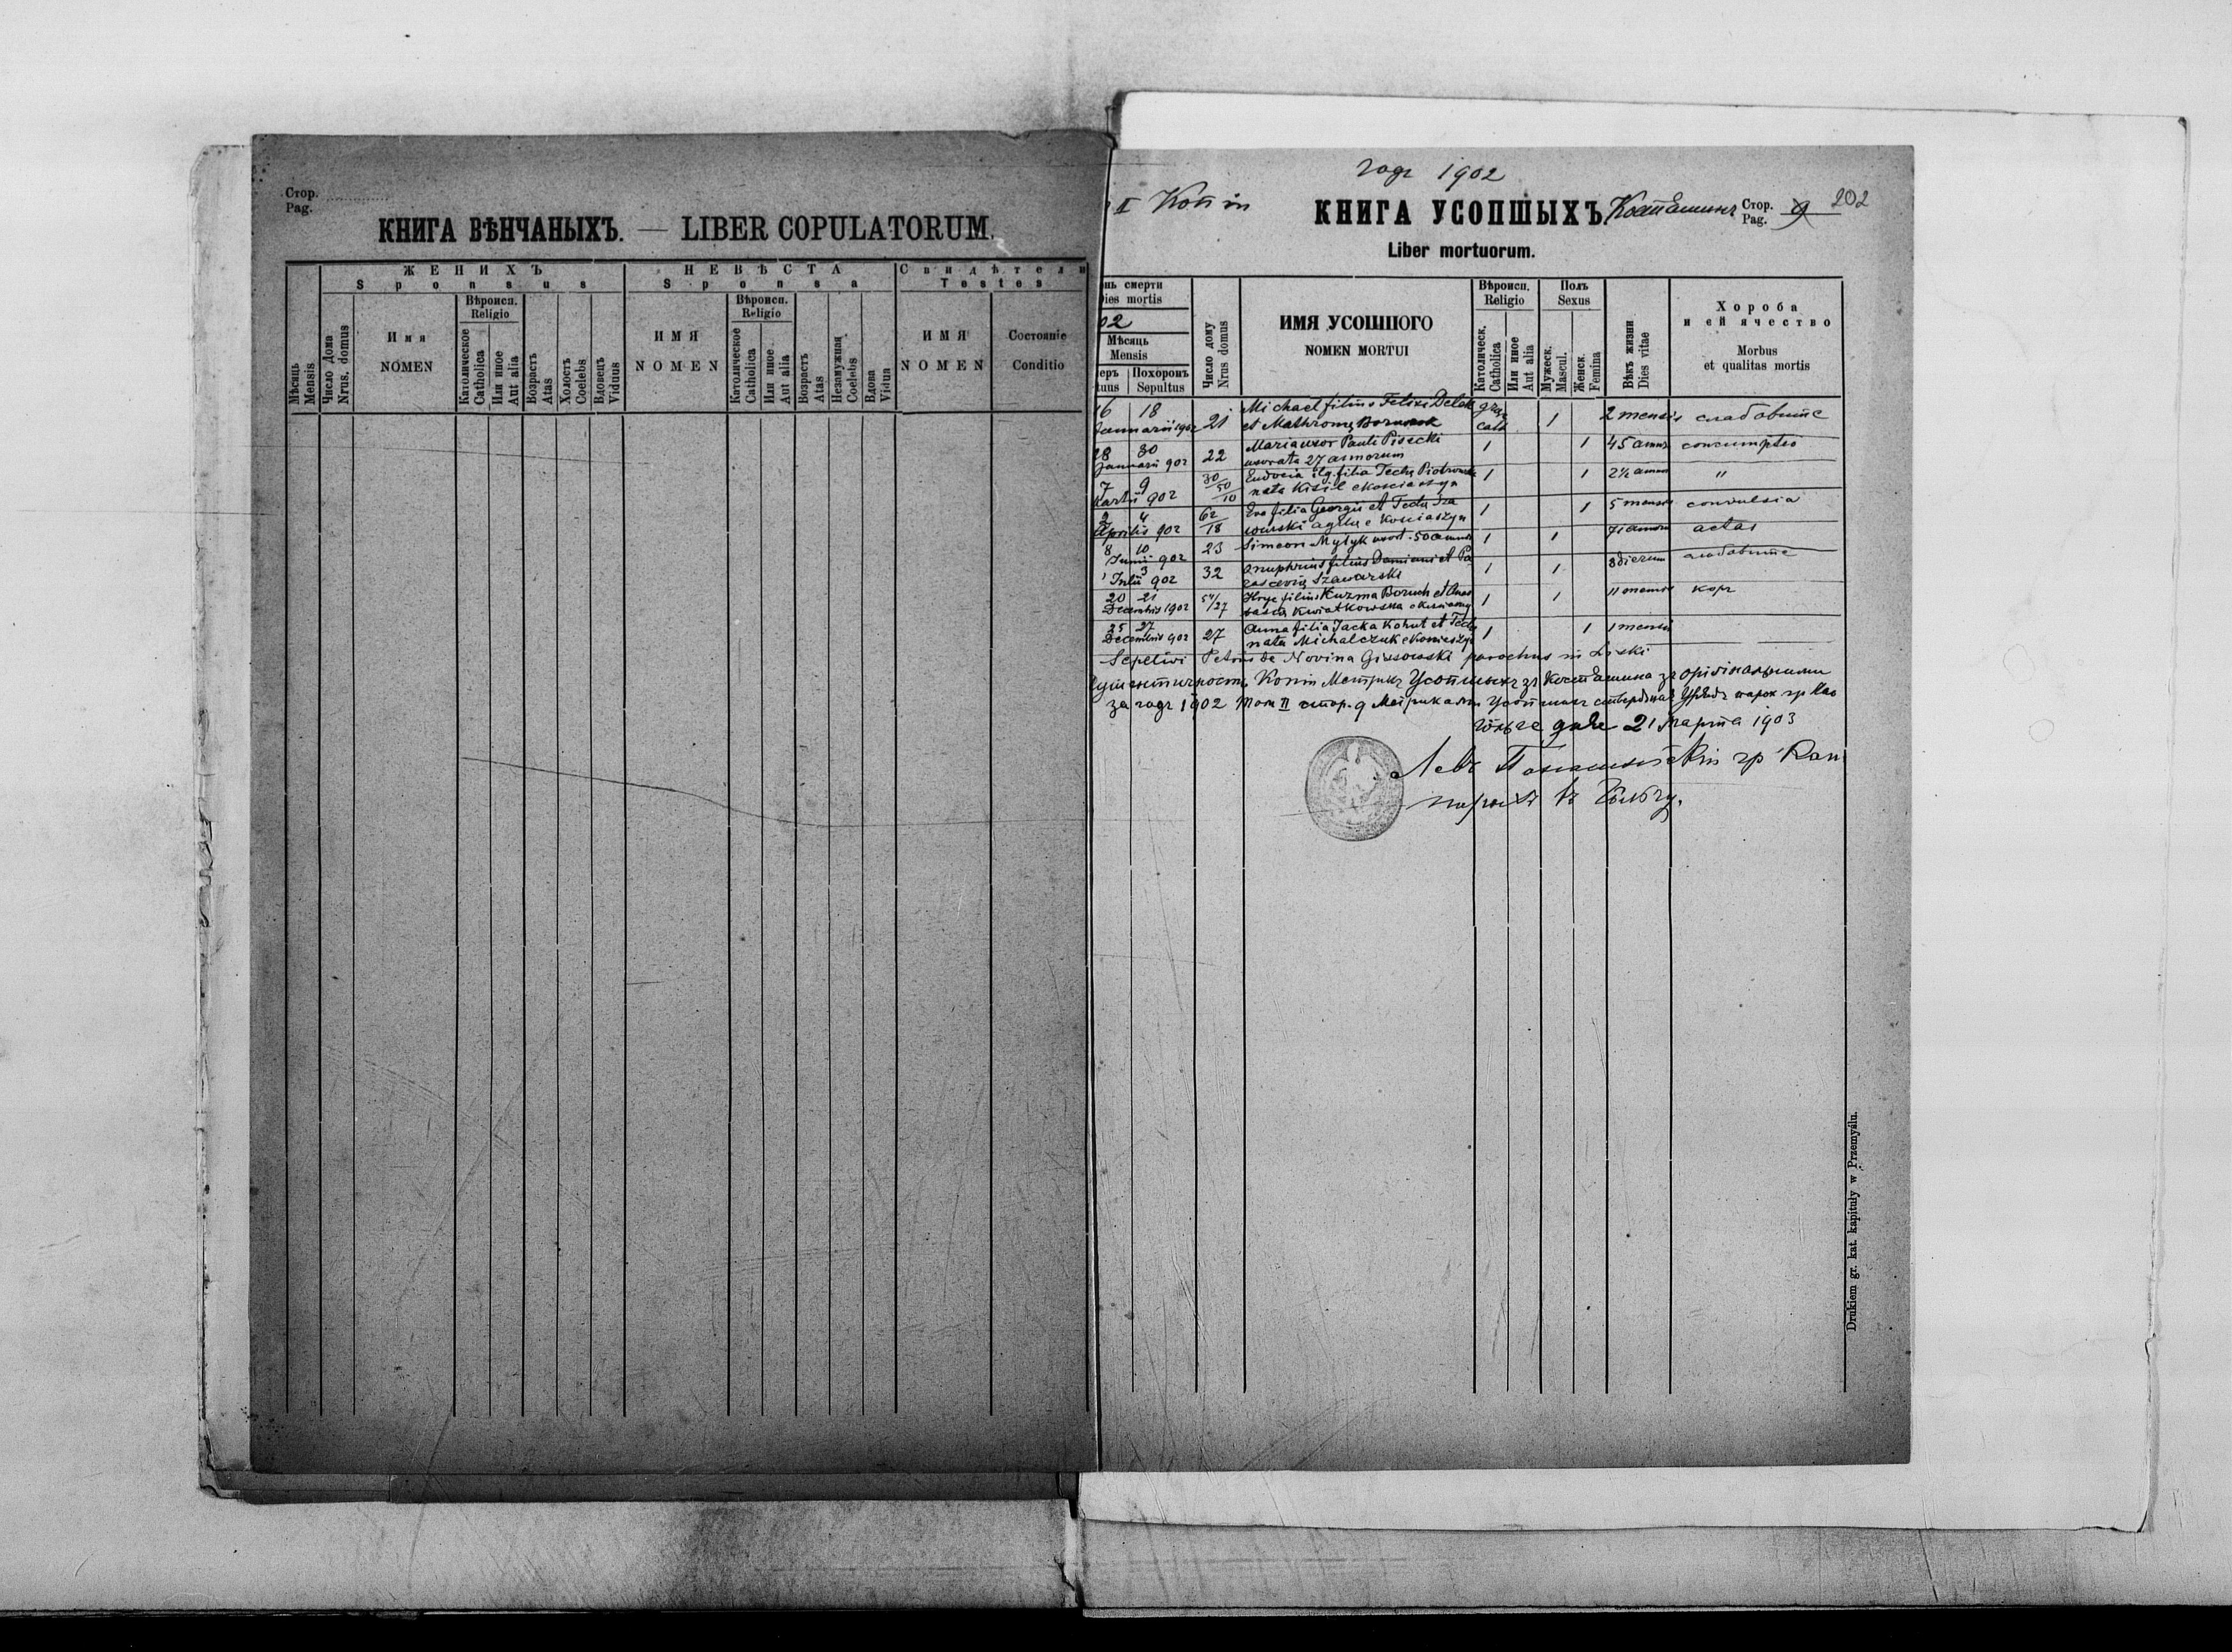 Стор.
Pag.
КНИГА ВѢНЧАНЫХЪ. — LIBER COPULATORUM.
ЖЕНИХЪ
Sponsus
НЕВѢСТА
Sponsa
Свидѣтели
Testes
Мѣсяць
Mensis
Число Дома
Nrus. domus
Имя
NOMEN
Вѣроисп.
Religio
Католическое
Catholica
Или иное
Aut alia
Возрастъ
Atas
Холостъ
Coelebs
Вдовецъ
Viduus
ИМЯ
NOMEN
Вѣроисп.
Religio
Католическое
Catholica
Или иное
Aut alia
Возрастъ
Atas
Незамужная
Coelebs
Вдова
Vidua
ИМЯ
NOMEN
Состояніе
Conditio
годъ 1902
II Копія
КНИГА УСОПШЫХЪ Костѣшинъ Стор.
Pag. 9 202
Liber mortuorum.
нь смерти
Dies mortis
02
Мѣсяць
Mensis
еръ
tuus
Похоронъ
Sepultus
Число дому
Nrus domus
ИМЯ УСОШПОГО
NOMEN MORTUI
Вѣроисп.
Religio
Католическ.
Catholica
Или иное
Aut alia
Полъ
Sexus
Мужеск.
Mascul.
Женск.
Femina
Вѣкъ жизни
Dies vitae
Хороба
и ей ячество
Morbus
et qualitas mortis
16 18 Michael filius gr. 2 mensis
Januarii 1902 21 et Mathronę cath 1
28 30 Maria uxor Pauli Pisecki 1 1 45 annor consumptio
Januarii 902 22 uxorata 27 annorum
7 9 30/50/10 Eudocia ilg. filia Teclę 1 1 2½ annor "
Martii 902 nata Kisil e Kosciaszyn
2 4 62/18 Eva filia Georgii et Teclę 1 1 5 mensis convulsia
Aprilis 902 e Kosciaszyn
8 10 23 Simeon Mylyk uxort. 50 annor 1 1 71 annor aetas
Junii 902
1 3 32 Onuphrius filius Damiani et Pa 1 1 8 dierum
Julii 902 rascevię Szawarski
20 21 54/27 filius Kuzma Boruch et Anas 1 1 11 mensis коръ
Decembris 1902 Kwiatkowska
25 27 27 Anna filia Jacka Kohut et Teclę 1 1 1 mensis
Decembris 902 nata Michalczuk
Sepelivi Petrus de Novina parochus in Liski
Копіи Метрикъ Усопшихъ зъ Костѣшина зъ оріґінальними
за годъ 1902 Том II стор. 9
дня 21 Марта 1903
Левъ гр Кат
парохъ въ
Drukiem gr. kat. kapituły w Przemyślu.